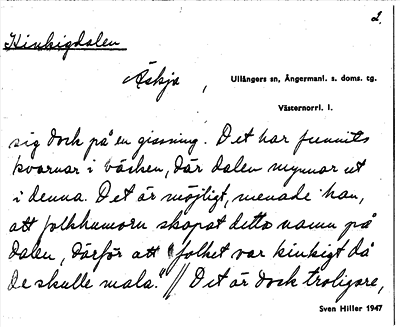 2.
Kinkigdalen
Äskja, Ullångers sn, Ångermanl. s. doms. tg.
Västernorrl. l.
sig dock på en gissning. Det har funnits
kvarnar i bäcken, där dalen mynnar ut
i denna. Det är möjligt, menade han,
att folkhumorn skapat detta namn på
dalen, därför att "folket var kinkigt då
De skulle mala." // Det är dock troligare,
Sven Hiller 1947